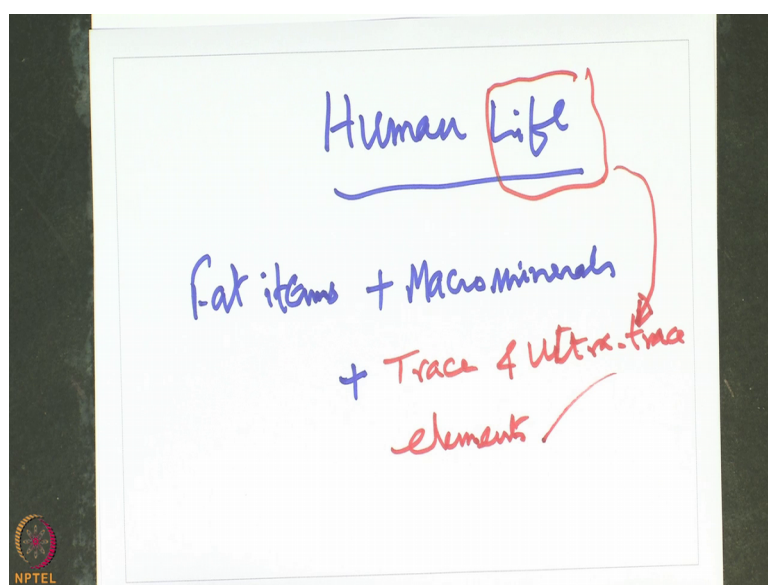 Human Life
Fat items + Macrominerals
+ Trace & Ultra-trace
elements
NPTEL